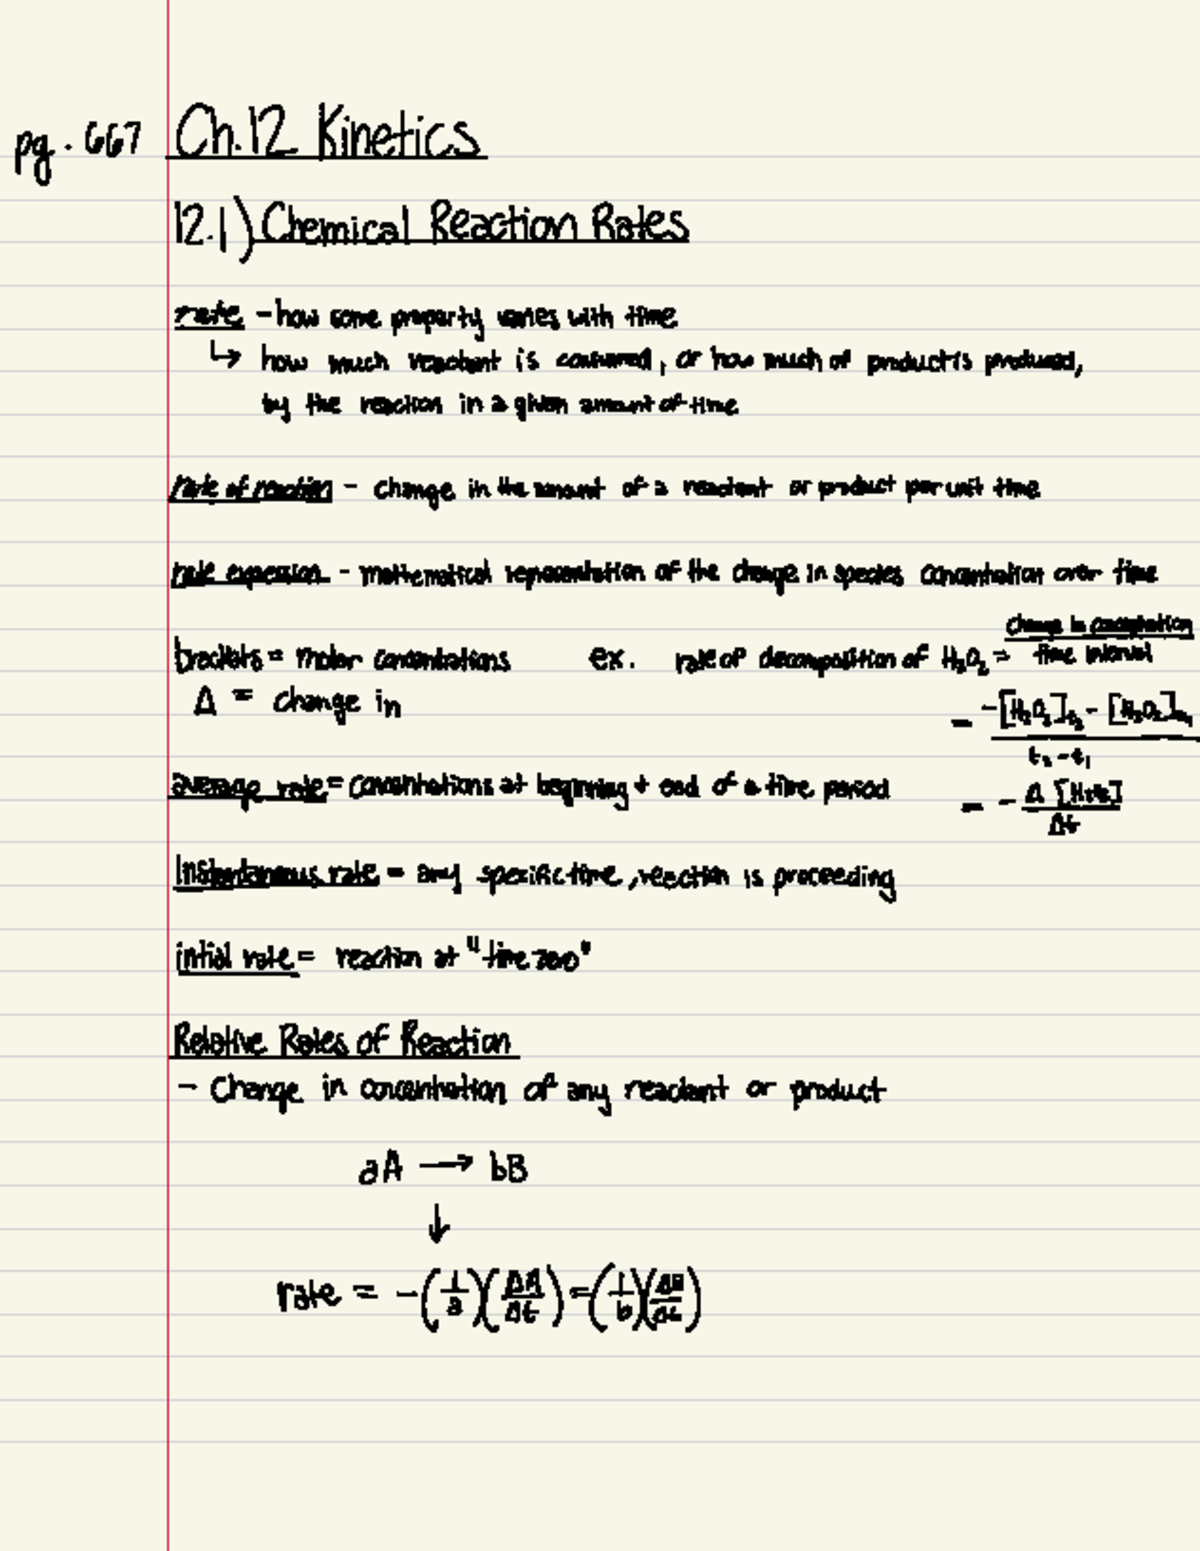 pg. 667 Ch.12 Kinetics
12.1) Chemical Reaction Rates
rate - how some property varies with time
↳ how much reactant is consumed, or how much of product is produced,
by the reaction in a given amount of time
rate of reaction - change in the amount of a reactant or product per unit time
rate expression - mathematical representation of the change in species concentration over time
brackets = molar concentrations ex. rate of decomposition of H₂O₂ = change in concentration / time interval
Δ = change in
= -[H₂O₂]t₂ - [H₂O₂]t₁ / t₂-t₁
average rate = concentrations at beginning + end of a time period
= - Δ [H₂O₂] / Δt
Instantaneous rate = any specific time, reaction is proceeding
intial rate = reaction at "time zero"
Relative Rates of Reaction
- Change in concentration of any reactant or product
aA → bB
↓
rate = -(1/a)(ΔA/Δt) = (1/b)(ΔB/Δt)